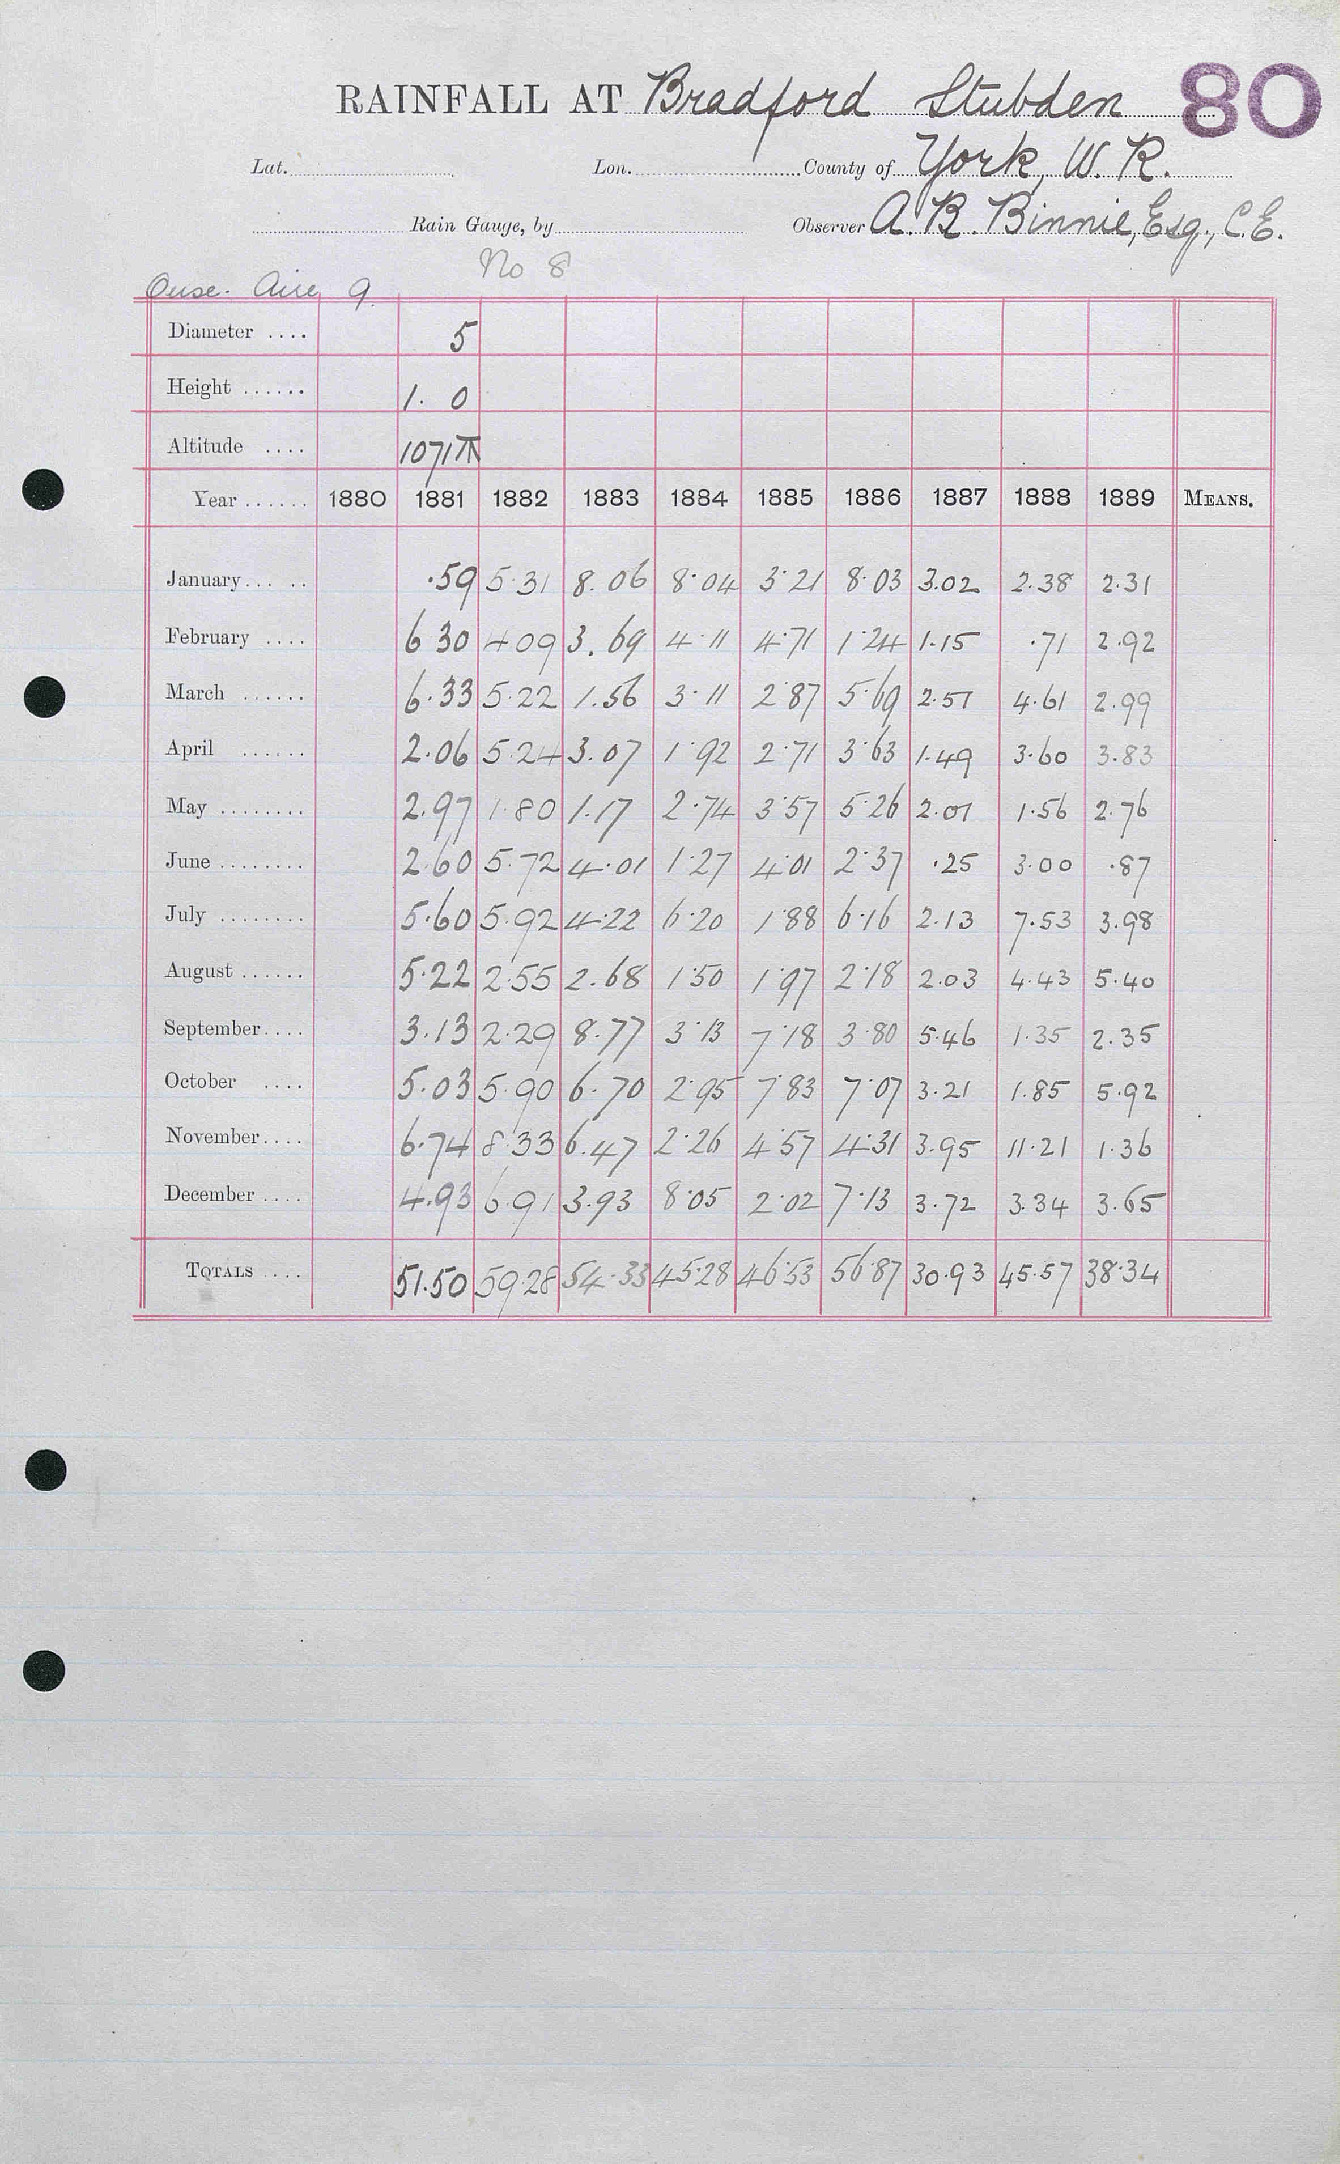 RAINFALL AT Bradford Stubden 80
Lat. Lon. County of York, W. R.
Rain Gauge, by Observer A. R. Binnie, Esq., C.E.
No 8
Ouse. Aire 9.
Diameter .... 5
Height ...... 1. 0
Altitude .... 1071
Year ...... 1880 1881 1882 1883 1884 1885 1886 1887 1888 1889 MEANS.
January ... .. .59 5.31 8.06 8.04 3.21 8.03 3.02 2.38 2.31
February .... 6 30 4 09 3.69 4.11 4.71 1.24 1.15 .71 2.92
March ...... 6.33 5.22 1.56 3.11 2.87 5.69 2.57 4.61 2.99
April ...... 2.06 5.24 3.07 1.92 2.71 3.63 1.49 3.60 3.83
May ........ 2.97 1.80 1.17 2.74 3.57 5.26 2.01 1.56 2.76
June ........ 2.60 5.72 4.01 1.27 4.01 2.37 .25 3.00 .87
July ........ 5.60 5.92 4.22 6.20 1.88 6.16 2.13 7.53 3.98
August ...... 5.22 2.55 2.68 1.50 1.97 2.18 2.03 4.43 5.40
September .... 3.13 2.29 8.77 3.13 7.18 3.80 5.46 1.35 2.35
October .... 5.03 5.90 6.70 2.95 7.83 7.07 3.21 1.85 5.92
November .... 6.74 8.33 6.47 2.26 4.57 4.31 3.95 11.21 1.36
December .... 4.93 6.91 3.93 8.05 2.02 7.13 3.72 3.34 3.65
TOTALS .... 51.50 59.28 54.33 45.28 46.53 56.87 30.93 45.57 38.34